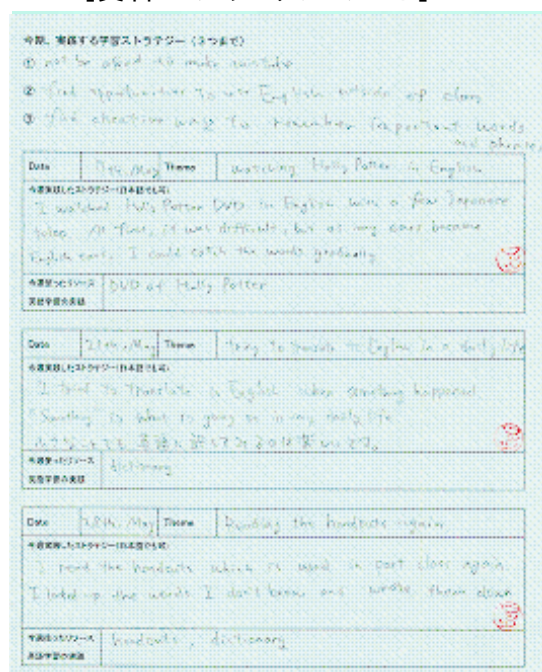 今期、実践する学習ストラテジー(3つまで)
① not be afraid to make mistake
② find opportunities to use English outside of class
③ find creative ways to remember important words
and phrases
Date 7th, May Theme watching Holly Potter in English
今週実践したストラテジー(日本語でも可)
I watched Holly Potter DVD in English with a few Japanese
At first, it was difficult, but as my ears became
English ears, I could catch the words gradually
今週使ったリソース DVD of Holly Potter
英語学習の実践
Date 21th, May Theme trying to translate to English in a daily life
今週実践したストラテジー(日本語でも可)
I tried to translate in English when something happened
"Something" is what is going on in my daily life
英語に訳してみるのは楽しいです。
今週使ったリソース dictionary
英語学習の実践
Date 28th, May Theme Reading the handouts again
今週実践したストラテジー(日本語でも可)
I read the handouts which is used in past class again
I looked up the words I don't know and wrote them down
今週使ったリソース handouts, dictionary
英語学習の実践